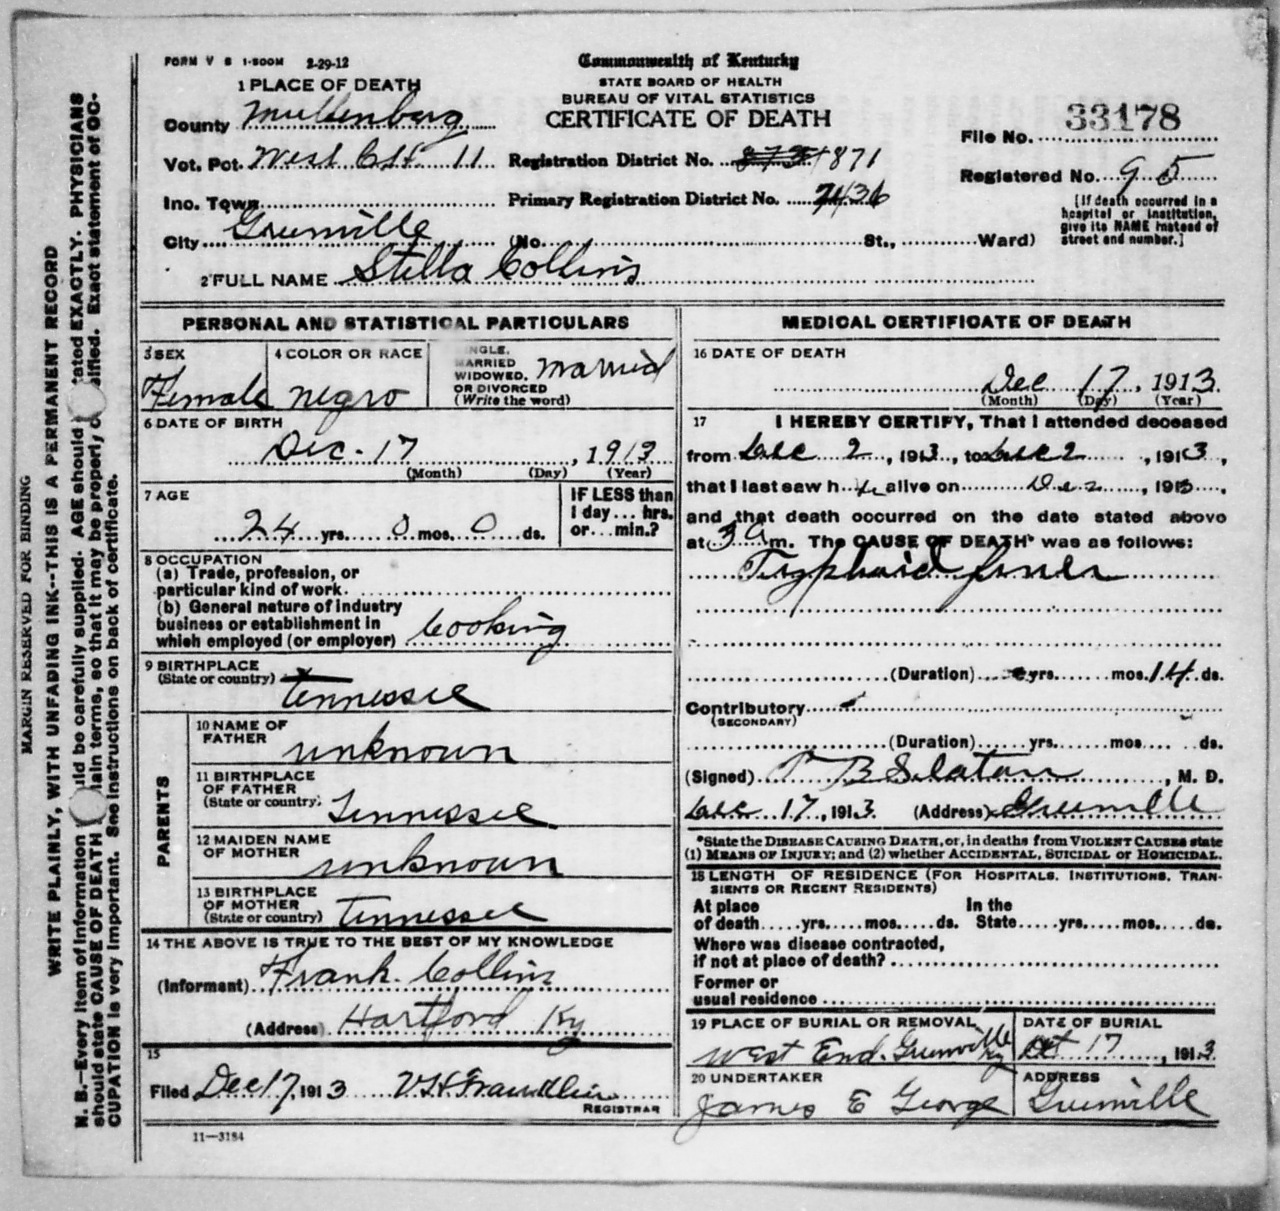 FORM V S 1-500M 2-29-12
Commonwealth of Kentucky
STATE BOARD OF HEALTH
BUREAU OF VITAL STATISTICS
CERTIFICATE OF DEATH
1 PLACE OF DEATH
County Muhlenberg
Vot. Pct. West C.H. 11
Registration District No. 871
File No. 33178
Registered No. 95
Ino. Town
Primary Registration District No. 7436
[If death occurred in a hospital or institution, give its NAME instead of street and number.]
City Greenville (No. St., Ward)
2 FULL NAME Stella Collins
PERSONAL AND STATISTICAL PARTICULARS
3 SEX Female
4 COLOR OR RACE negro
MARRIED
WIDOWED,
OR DIVORCED
(Write the word) married
6 DATE OF BIRTH
Dec. 17, 1913
(Month) (Day) (Year)
7 AGE
24 yrs. 0 mos. 0 ds.
IF LESS than
1 day... hrs.
or... min.?
8 OCCUPATION
(a) Trade, profession, or
particular kind of work.
(b) General nature of industry
business or establishment in
which employed (or employer) Cooking
9 BIRTHPLACE
(State or country) Tennessee
PARENTS
10 NAME OF
FATHER unknown
11 BIRTHPLACE
OF FATHER
(State or country) Tennessee
12 MAIDEN NAME
OF MOTHER unknown
13 BIRTHPLACE
OF MOTHER
(State or country) Tennessee
14 THE ABOVE IS TRUE TO THE BEST OF MY KNOWLEDGE
(Informant) Frank Collins
(Address) Hartford Ky
15
Filed Dec 17, 1913 V.H. Franklin
REGISTRAR
11—3184
MEDICAL CERTIFICATE OF DEATH
16 DATE OF DEATH
Dec 17, 1913
(Month) (Day) (Year)
17 I HEREBY CERTIFY, That I attended deceased
from Dec 2, 1913, to Dec 2, 1913,
that I last saw h alive on Dec, 1913,
and that death occurred on the date stated above
at 3 a m. The CAUSE OF DEATH* was as follows:
Typhoid fever
(Duration) yrs. mos. 14 ds.
Contributory
(SECONDARY)
(Duration) yrs. mos. ds.
(Signed) B Slaton, M. D.
Dec 17, 1913 (Address) Greenville
*State the DISEASE CAUSING DEATH, or, in deaths from VIOLENT CAUSES state
(1) MEANS OF INJURY; and (2) whether ACCIDENTAL, SUICIDAL or HOMICIDAL.
18 LENGTH OF RESIDENCE (FOR HOSPITALS, INSTITUTIONS, TRAN-
SIENTS OR RECENT RESIDENTS)
At place In the
of death.....yrs.....mos.....ds. State.....yrs.....mos.....ds.
Where was disease contracted,
if not at place of death?
Former or
usual residence
19 PLACE OF BURIAL OR REMOVAL
West End. Greenville Ky
DATE OF BURIAL
17, 1913
20 UNDERTAKER
James E George
ADDRESS
Greenville
MARGIN RESERVED FOR BINDING
WRITE PLAINLY, WITH UNFADING INK--THIS IS A PERMANENT RECORD
N. B.—Every item of information should be carefully supplied. AGE should stated EXACTLY. PHYSICIANS
should state CAUSE OF DEATH plain terms, so that it may be properly classified. Exact statement of OC-
CUPATION is very important. See instructions on back of certificate.